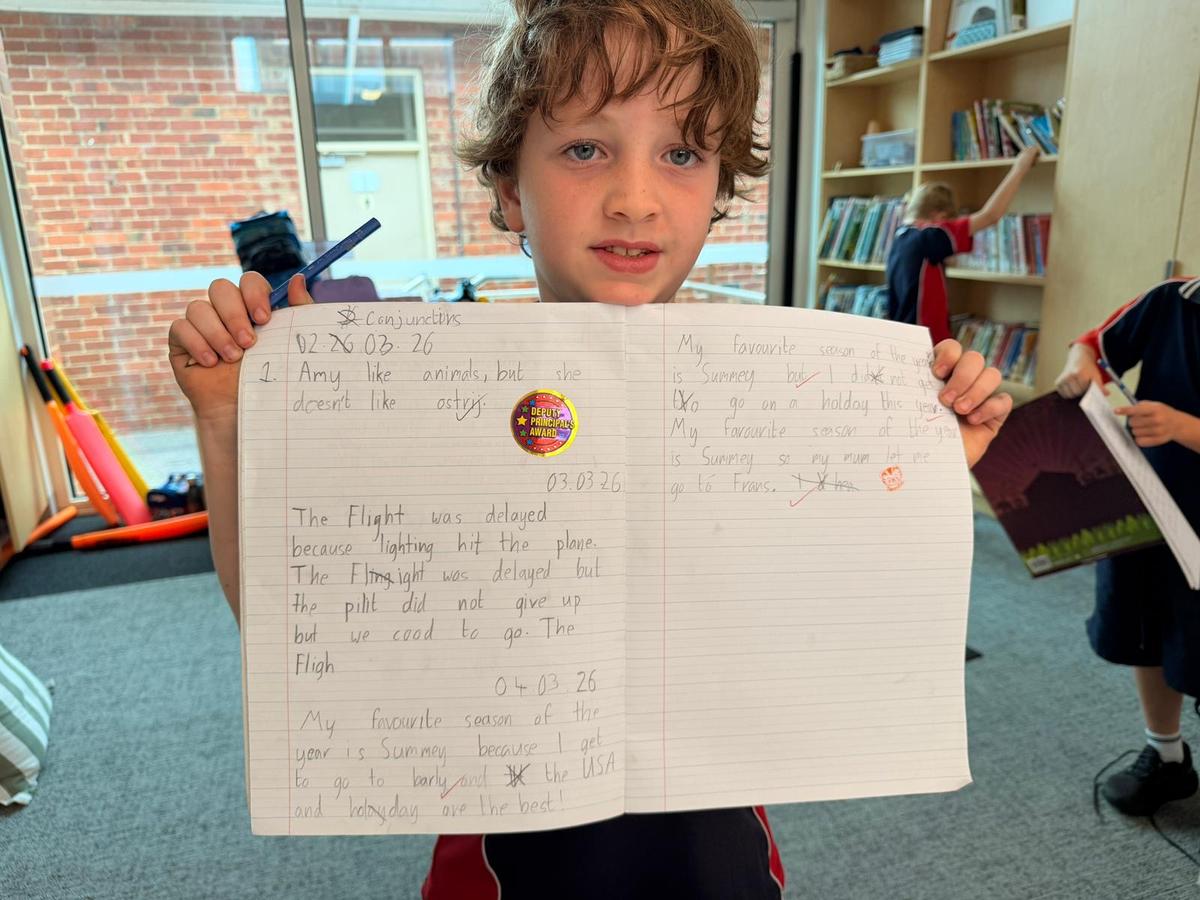 Conjunctins
02. 03. 26
1. Amy like animals, but she
doesn't like ostrij.
DEPUTY
PRINCIPAL'S
AWARD
03.03 26
The Flight was delayed
because lighting hit the plane.
The Flingight was delayed but
the pilit did not give up
but we cood to go. The
Fligh
04.03.26
My favourite season of the
year is Summey because I get
to go to barly and the USA
and holayday are the best!
My favourite season of the year
is Summey but I did not get
to go on a holday this year.
My favourite season of the year
is Summey so my mum let me
go to Frans.